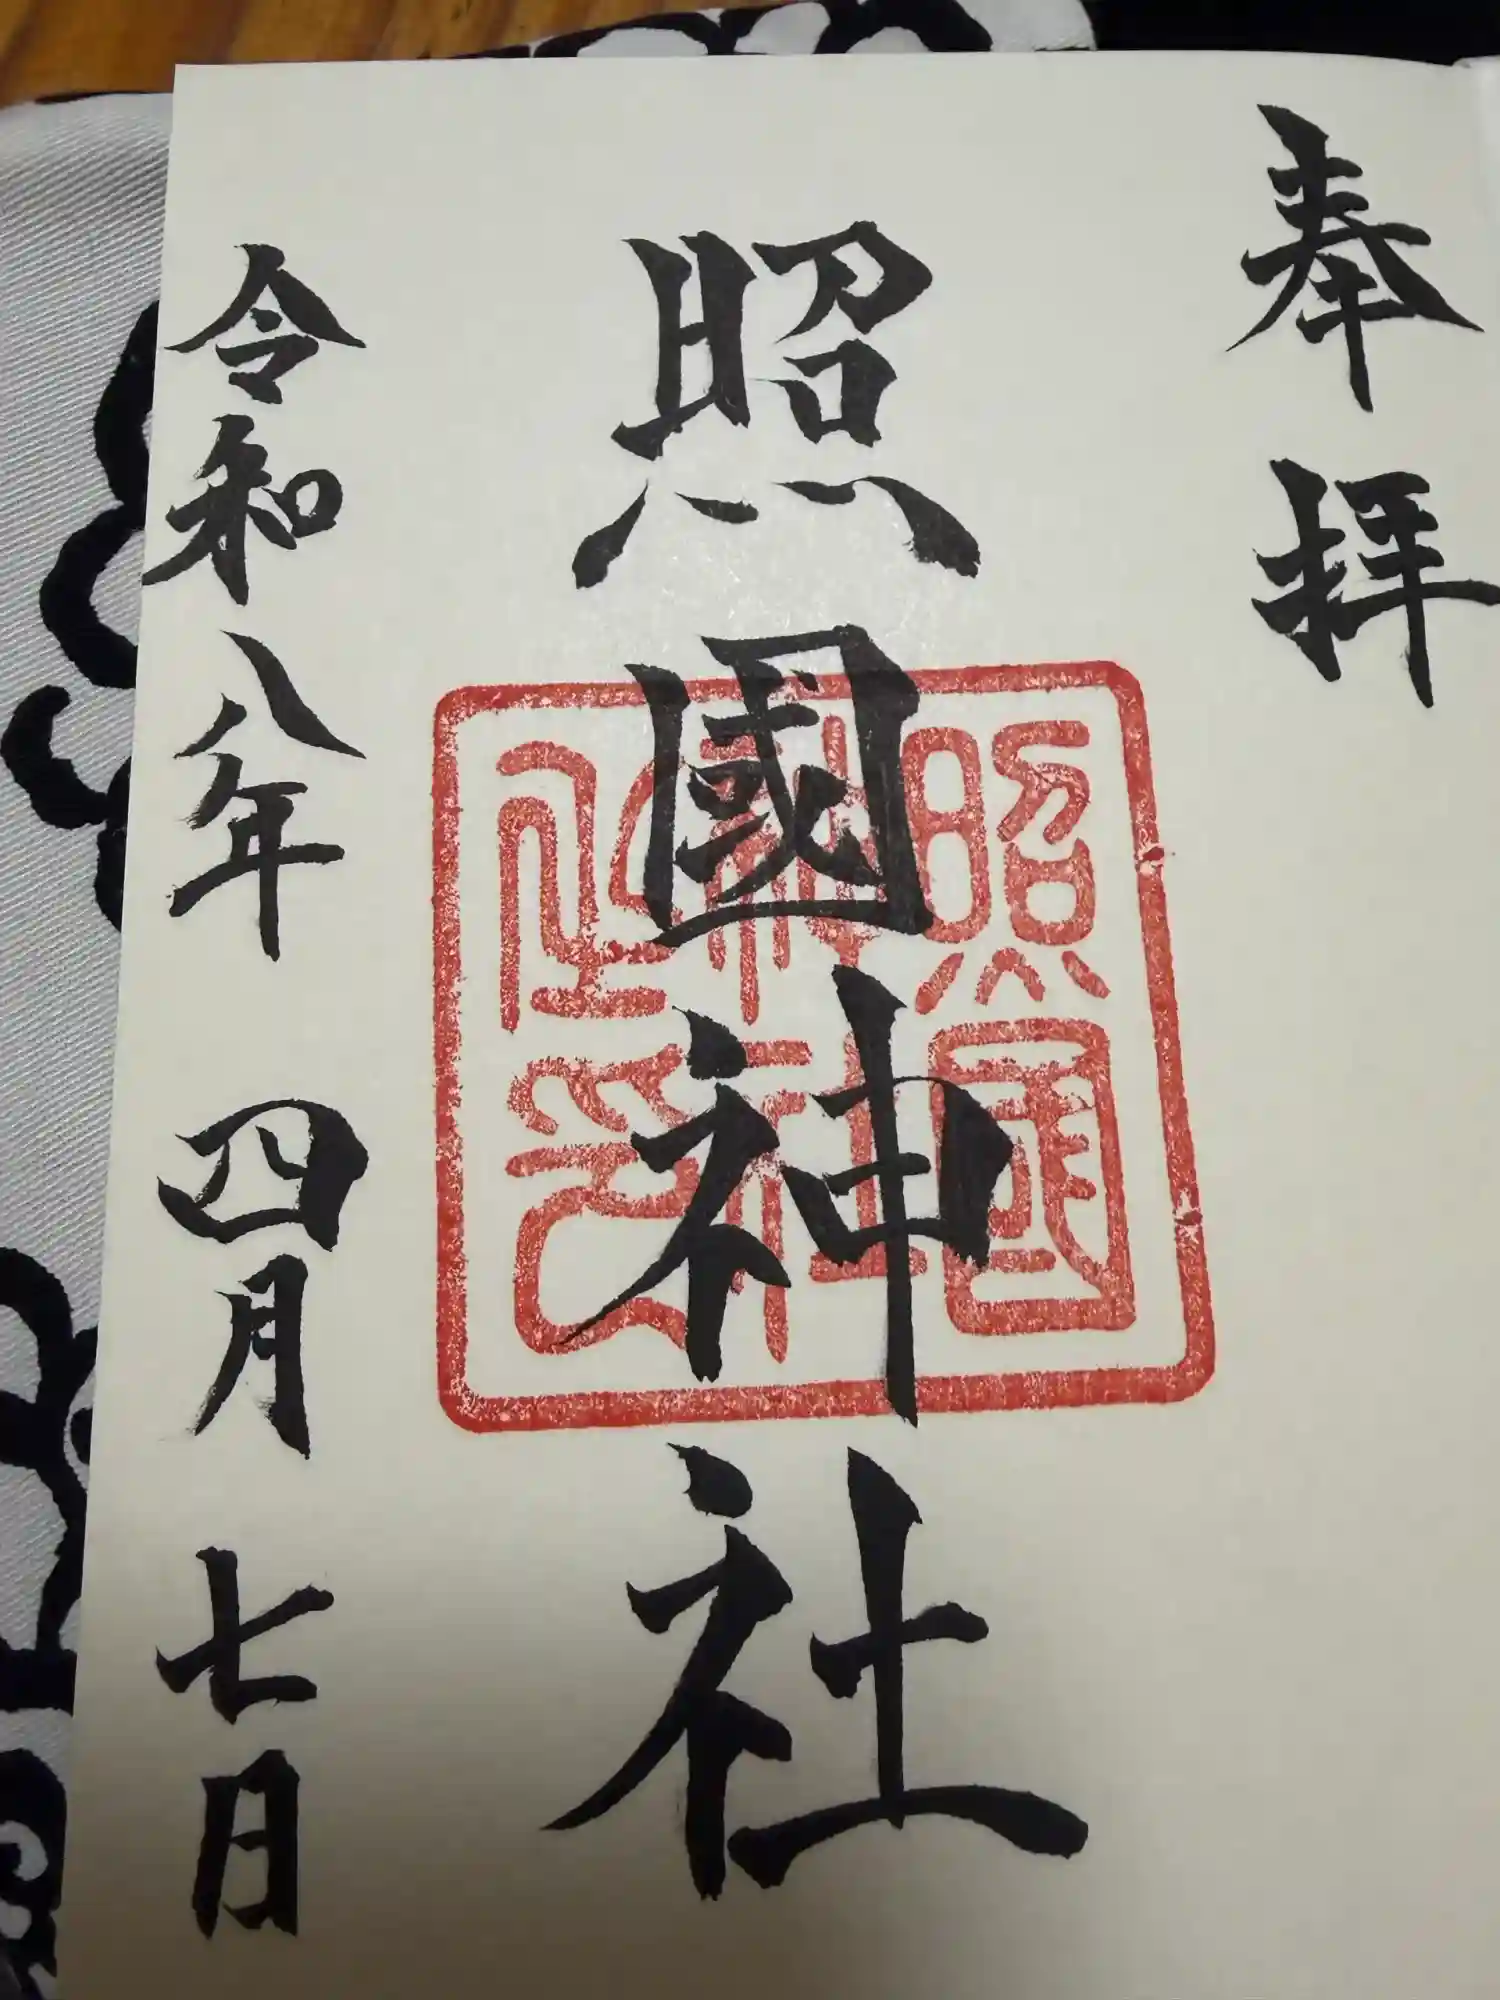 奉拝
照國神社
照國神社之印
令和八年 四月 七日